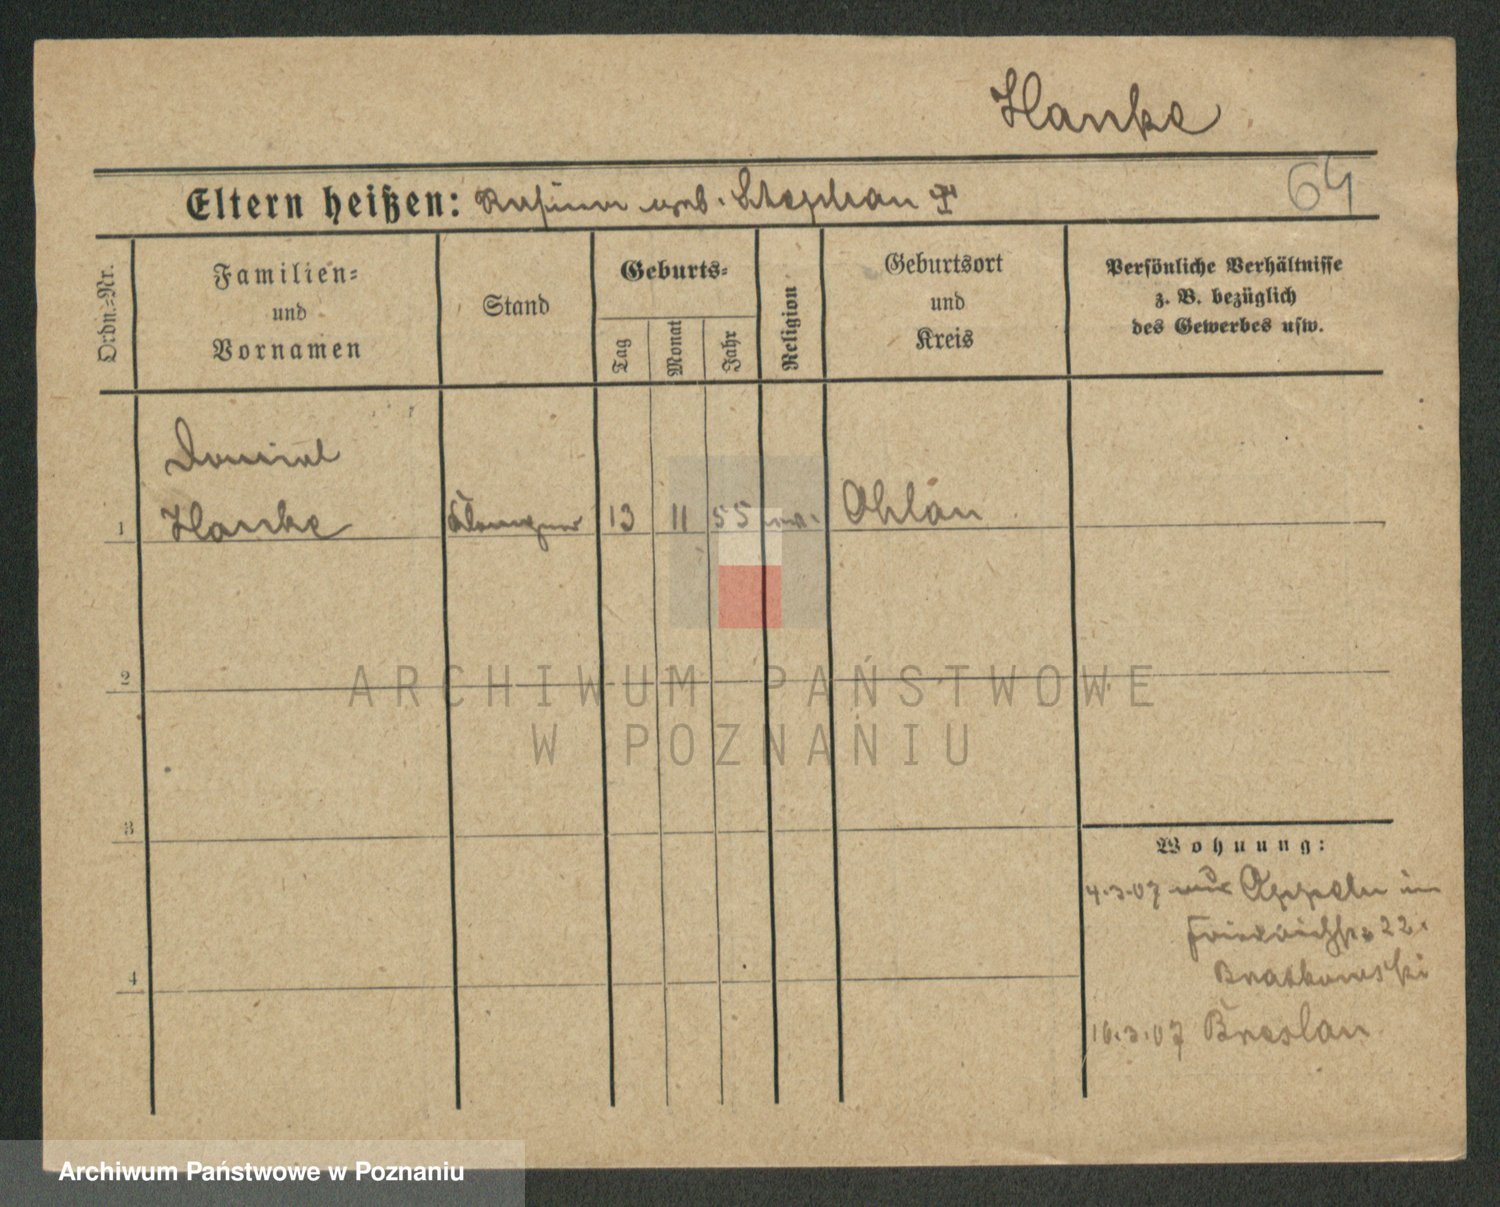 Hanke
64
Eltern heißen: geb. Stephan
Ordn.=Nr.
Familien=
und
Vornamen
Stand
Geburts=
Tag
Monat
Jahr
Religion
Geburtsort
und
Kreis
Persönliche Verhältnisse
z. B. bezüglich
des Gewerbes usw.
Daniel
1 Hanke Klempner 13 11 55 ev. Ohlau
2
ARCHIWUM PAŃSTWOWE
W POZNANIU
3
Wohnung:
4.3.07 aus Oppeln in
Friedrichstr 22.
Bratkowski
4
16.3.07 Breslau
Archiwum Państwowe w Poznaniu